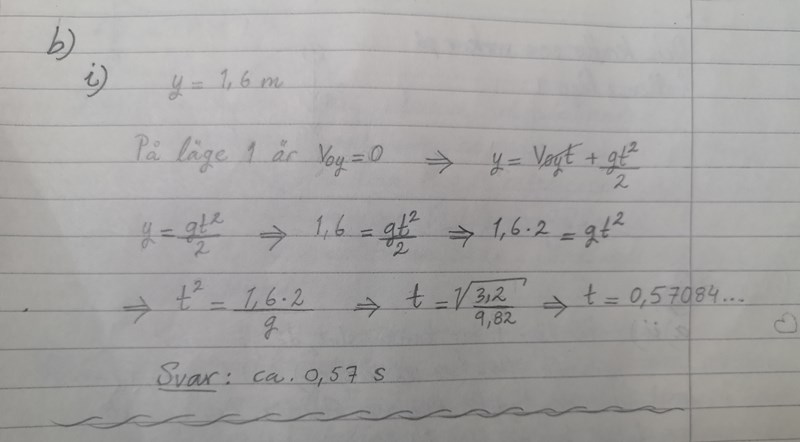 b)
i) y = 1,6 m
På läge 1 är V₀y = 0 ⇒ y = V₀yt + gt²/2
y = gt²/2 ⇒ 1,6 = gt²/2 ⇒ 1,6·2 = gt²
⇒ t² = 1,6·2/g ⇒ t = √(3,2/9,82) ⇒ t = 0,57084...
Svar: ca. 0,57 s